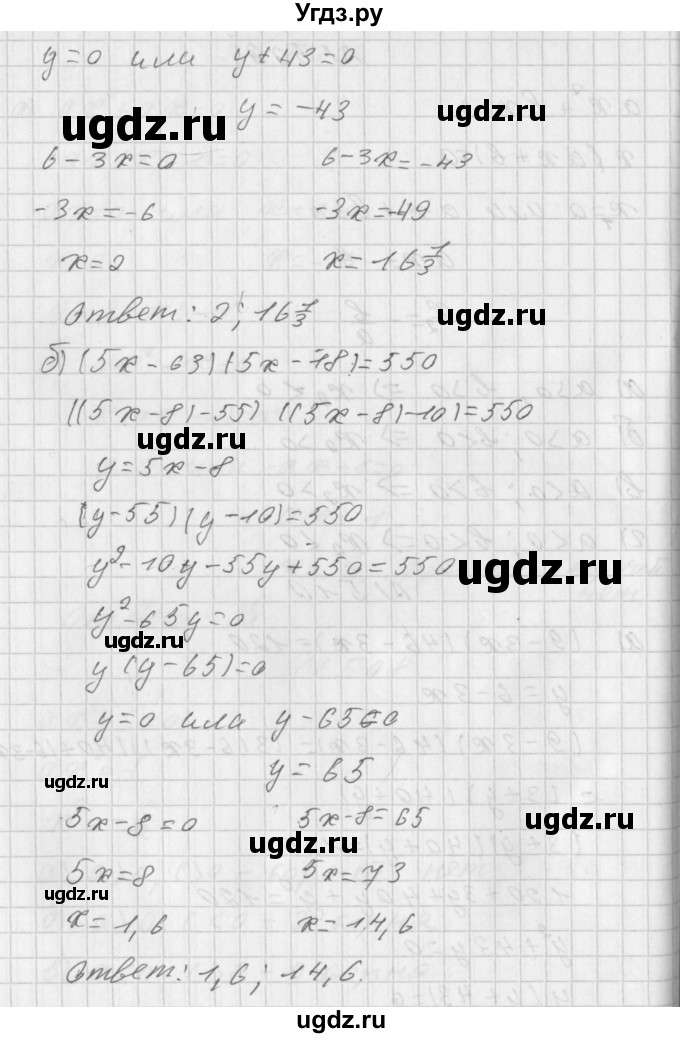 Угдз.ру
y=0 или y+43=0
y=-43
6-3x=0 6-3x=-43
-3x=-6 -3x=-49
x=2 x=16 1/3
Ответ: 2; 16 1/3
б) (5x-63)(5x-18)=550
((5x-8)-55) ((5x-8)-10)=550
y=5x-8
(y-55)(y-10)=550
y²-10y-55y+550=550
y²-65y=0
y(y-65)=0
y=0 или y-65=0
y=65
5x-8=0 5x-8=65
5x=8 5x=73
x=1,6 x=14,6
Ответ: 1,6; 14,6.
ugdz.ru
ugdz.ru
ugdz.ru
ugdz.ru
ugdz.ru
ugdz.ru
ugdz.ru
ugdz.ru
ugdz.ru
ugdz.ru
ugdz.ru
ugdz.ru
ugdz.ru